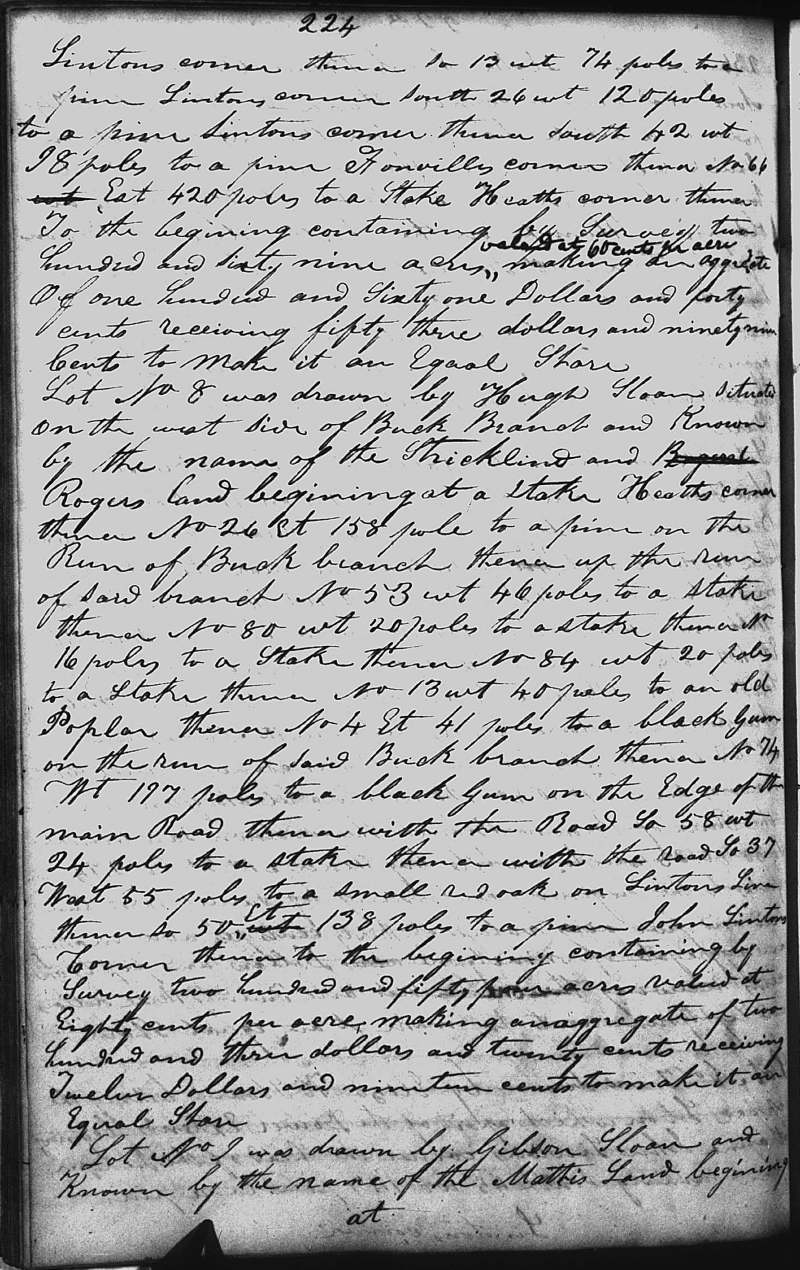 224
Lintons corner thence So 13 wt 74 poles to a
pine Lintons corner South 26 wt 120 poles
to a pine Lintons corner thence South 42 wt
98 poles to a pine Fonvilles corner thence No 66
wt Eat 420 poles to a Stake Heaths corner thence
To the begining containing by Survey two
valued at 60 cents pr acre
hundred and sixty nine acres,, making an aggregate
Of one hundred and Sixty one Dollars and forty
cents receiving fifty three dollars and ninety nine
Cents to make it an Egaal Share
Lot No 8 was drawn by Hugh Sloan situated
on the west side of Buck Branch and Known
by the name of the Stricklind and
Rogers land begining at a Stake Heaths corner
thence No 26 Et 158 pole to a pine on the
Run of Buck branch thence up the run
of said branch No 53 wt 46 poles to a stake
thence No 80 wt 20 poles to a stake thence No
16 poles to a Stake thence No 84 wt 20 poles
to a Stake thence No 13 wt 40 poles to an old
Poplar thence No 4 Et 41 poles to a black Gum
on the run of said Buck branch thence No 74
Wt 197 poles to a black Gum on the Edge of the
main Road thence with the Road So 58 wt
24 poles to a stake thence with the road So 37
West 55 poles to a small red oak on Lintons Line
Et
thence so 50,, wt 138 poles to a pine John Lintons
Corner thence to the begining containing by
Survey two hundred and fifty four acres valued at
Eighty cents per acre, making an aggregate of two
hundred and three dollars and twenty cents receiving
Twelve Dollars and nineteen cents to make it an
Equal Share
Lot No 9 was drawn by Gibson Sloan and
Known by the name of the Mathis Land begining
at